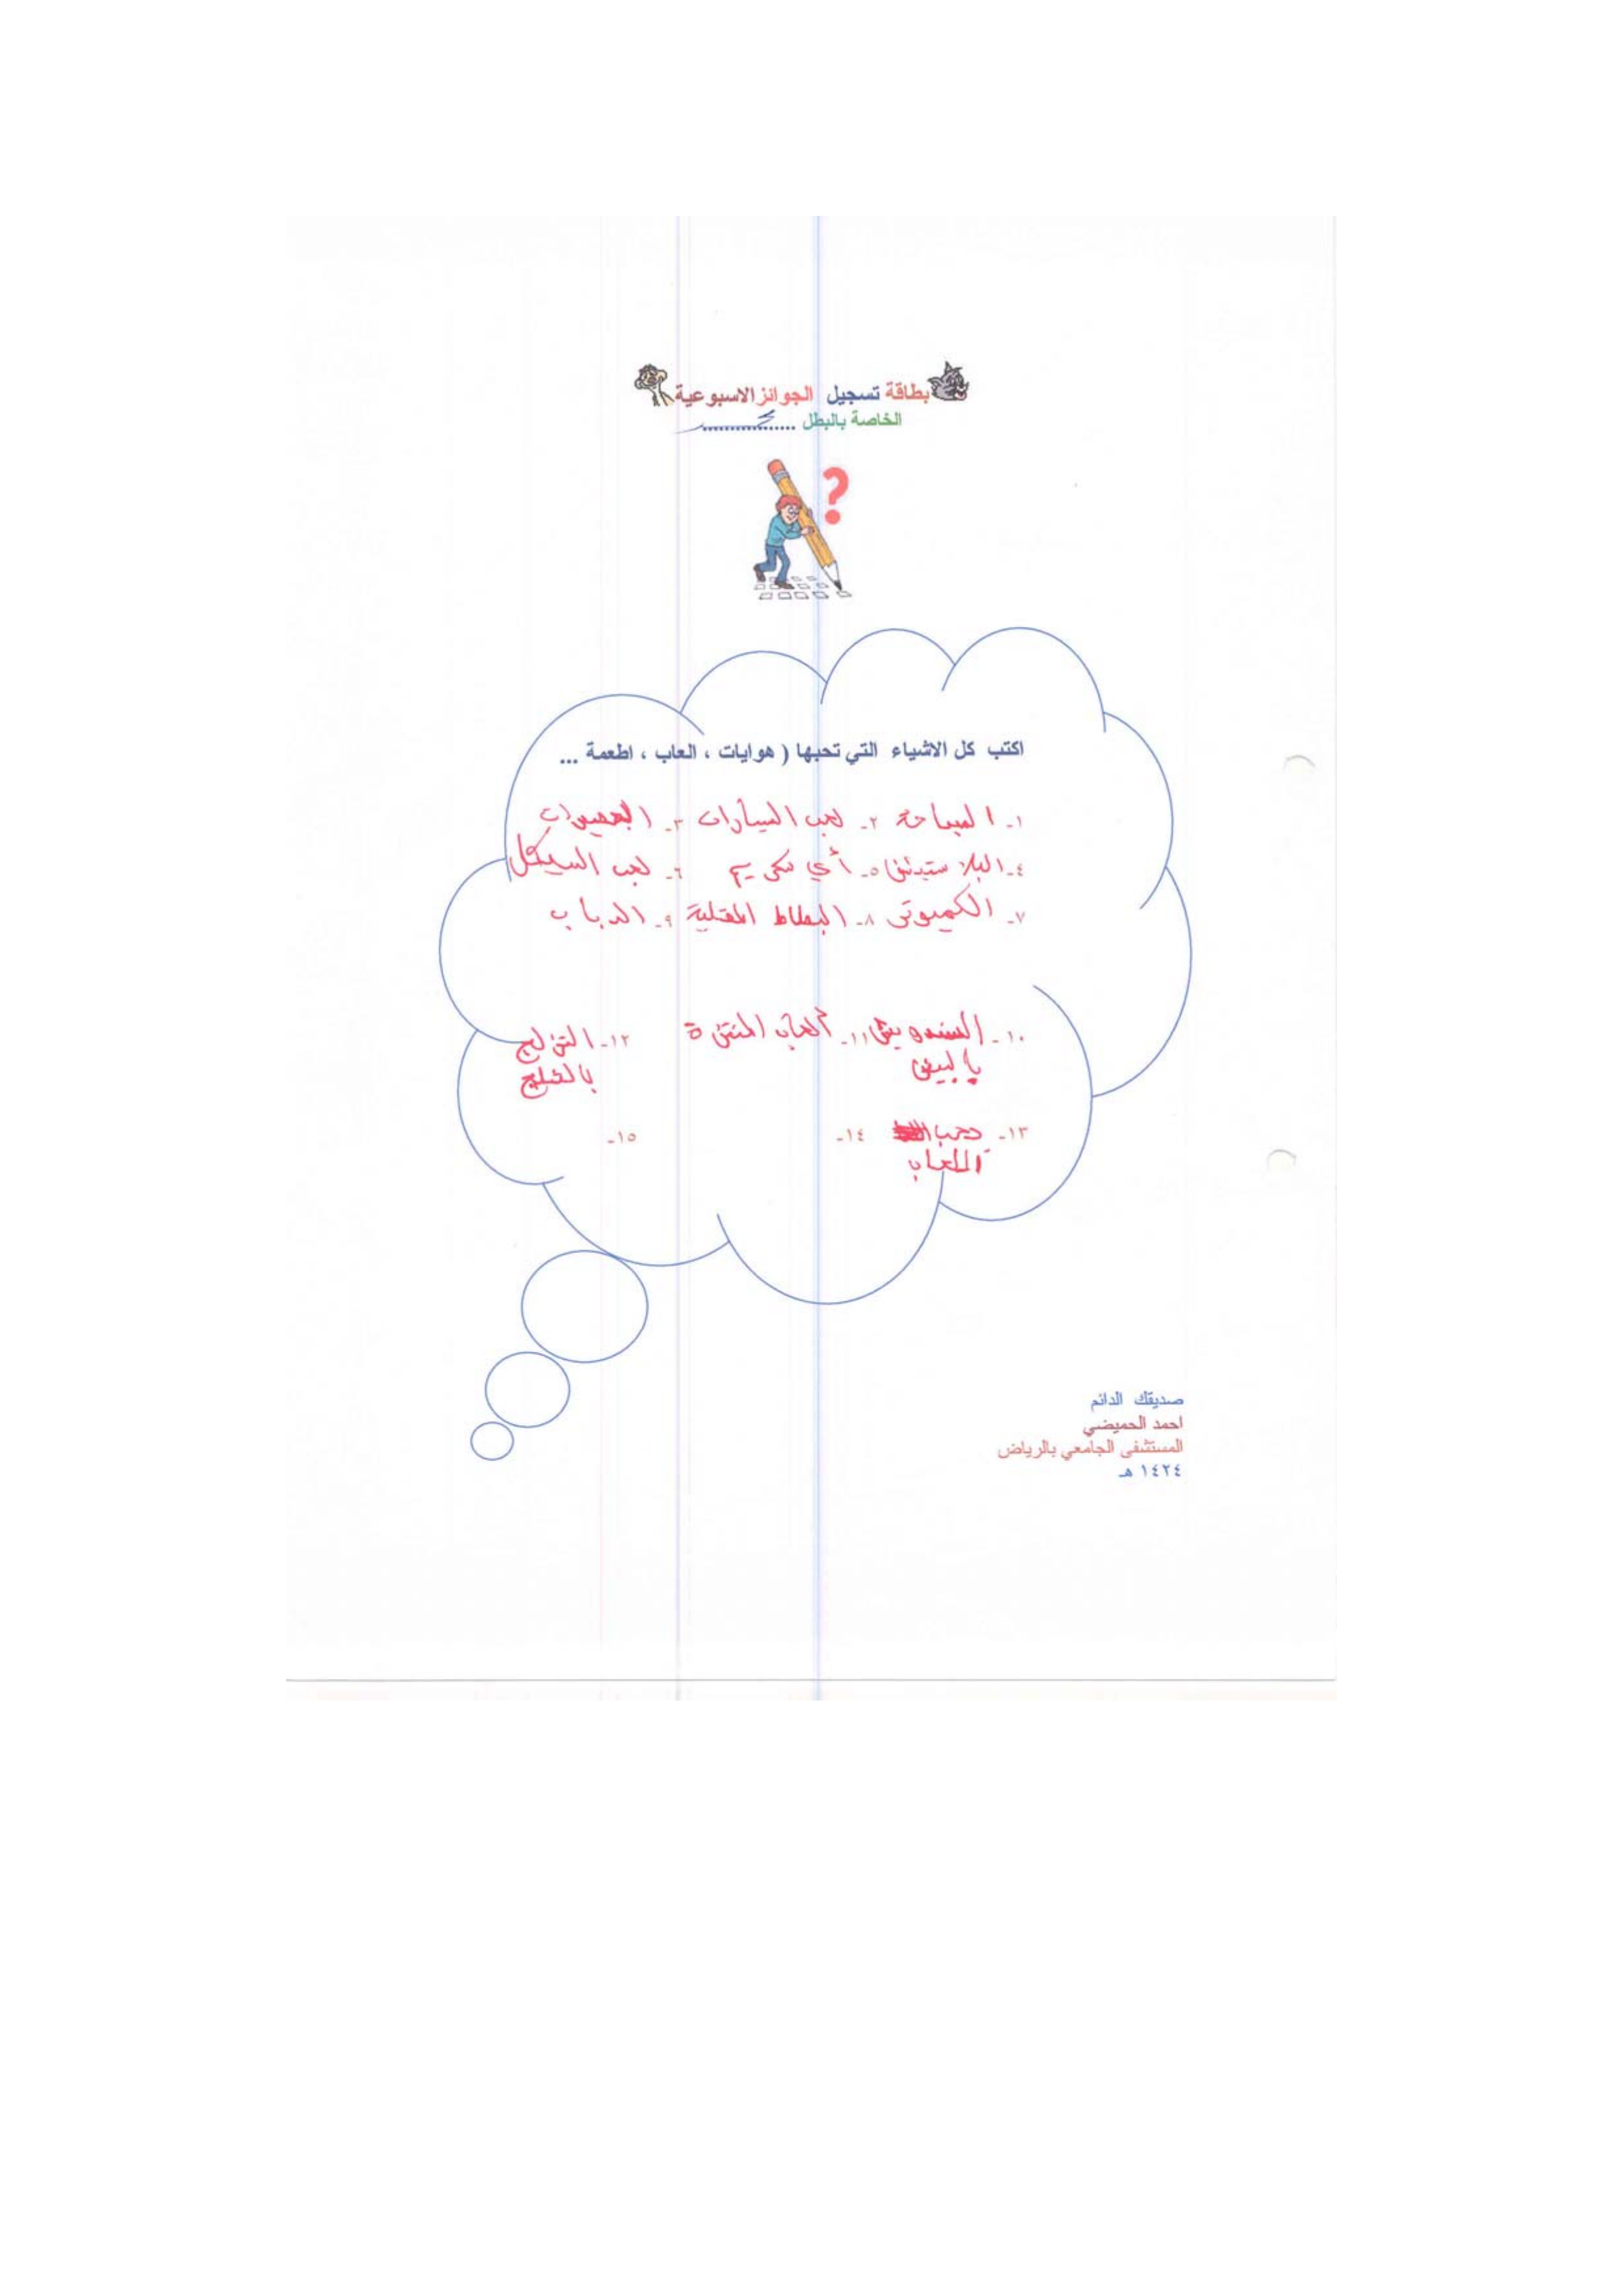 بطاقة تسجيل الجوائز الاسبوعية
الخاصة بالبطل ..................
?
اكتب كل الاشياء التي تحبها ( هوايات ، العاب ، اطعمة ...
١- السباحة ٢- لعب السيارات ٣- العصيرات
٤- البلاستيشن ٥- أي سكريم ٦- لعب السيكل
٧- الكمبيوتر ٨- البطاط المقلية ٩- الدباب
١٠- السندويش ١١- ألعاب ١٢- التزلج
بالبيض بالثلج
١٣- ١٤- ١٥-
صديقك الدائم
احمد الحميضي
المستشفى الجامعي بالرياض
١٤٢٤ هـ